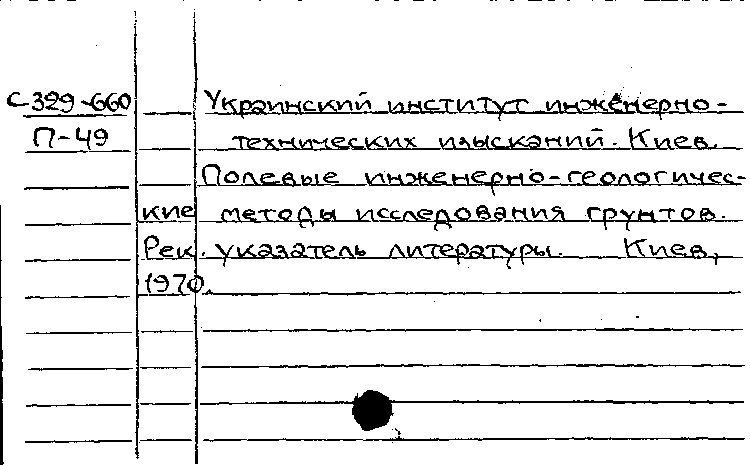 С-329-660 Украинский институт инженерно-
П-49 технических изысканий. Киев.
Полевые инженерно-геологичес-
кие методы исследования грунтов.
Рек. указатель литературы. Киев,
1970.